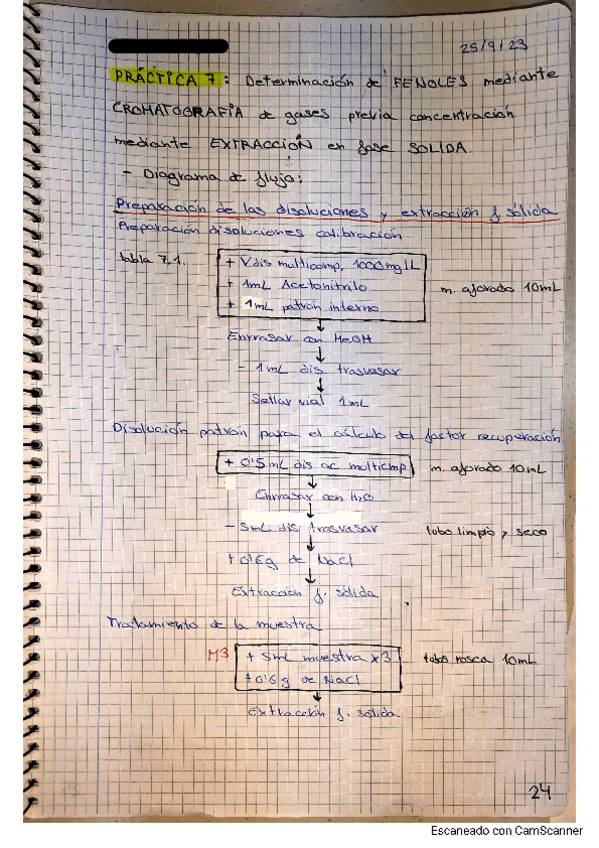 25/9/23
PRÁCTICA 7: Determinación de FENOLES mediante
CROMATOGRAFÍA de gases previa concentración
mediante EXTRACCIÓN en fase SOLIDA.
- Diagrama de flujo:
Preparación de las disoluciones y extracción f. sólida
Preparación disoluciones calibración
tabla 7.1.
+ Vdis multicomp. 1000 mg/L
+ 1mL Acetonitrilo
+ 1mL patrón interno
m. aforado 10mL
Enrrasar con MeOH
- 1mL dis trasvasar
Sellar vial 1mL
Disolución patrón para el cálculo del factor recuperación
+ 0'5 mL dis ac multicmp
m. aforado 10mL
Enrrasar con H2O
- 5mL dis trasvasar
tubo limpio y seco
+ 0'6g de NaCl
Extracción f. sólida
Tratamiento de la muestra
M3
+ 5mL muestra x3
+ 0'6 g de NaCl
tubos rosca 10mL
Extracción f. sólida.
24
Escaneado con CamScanner